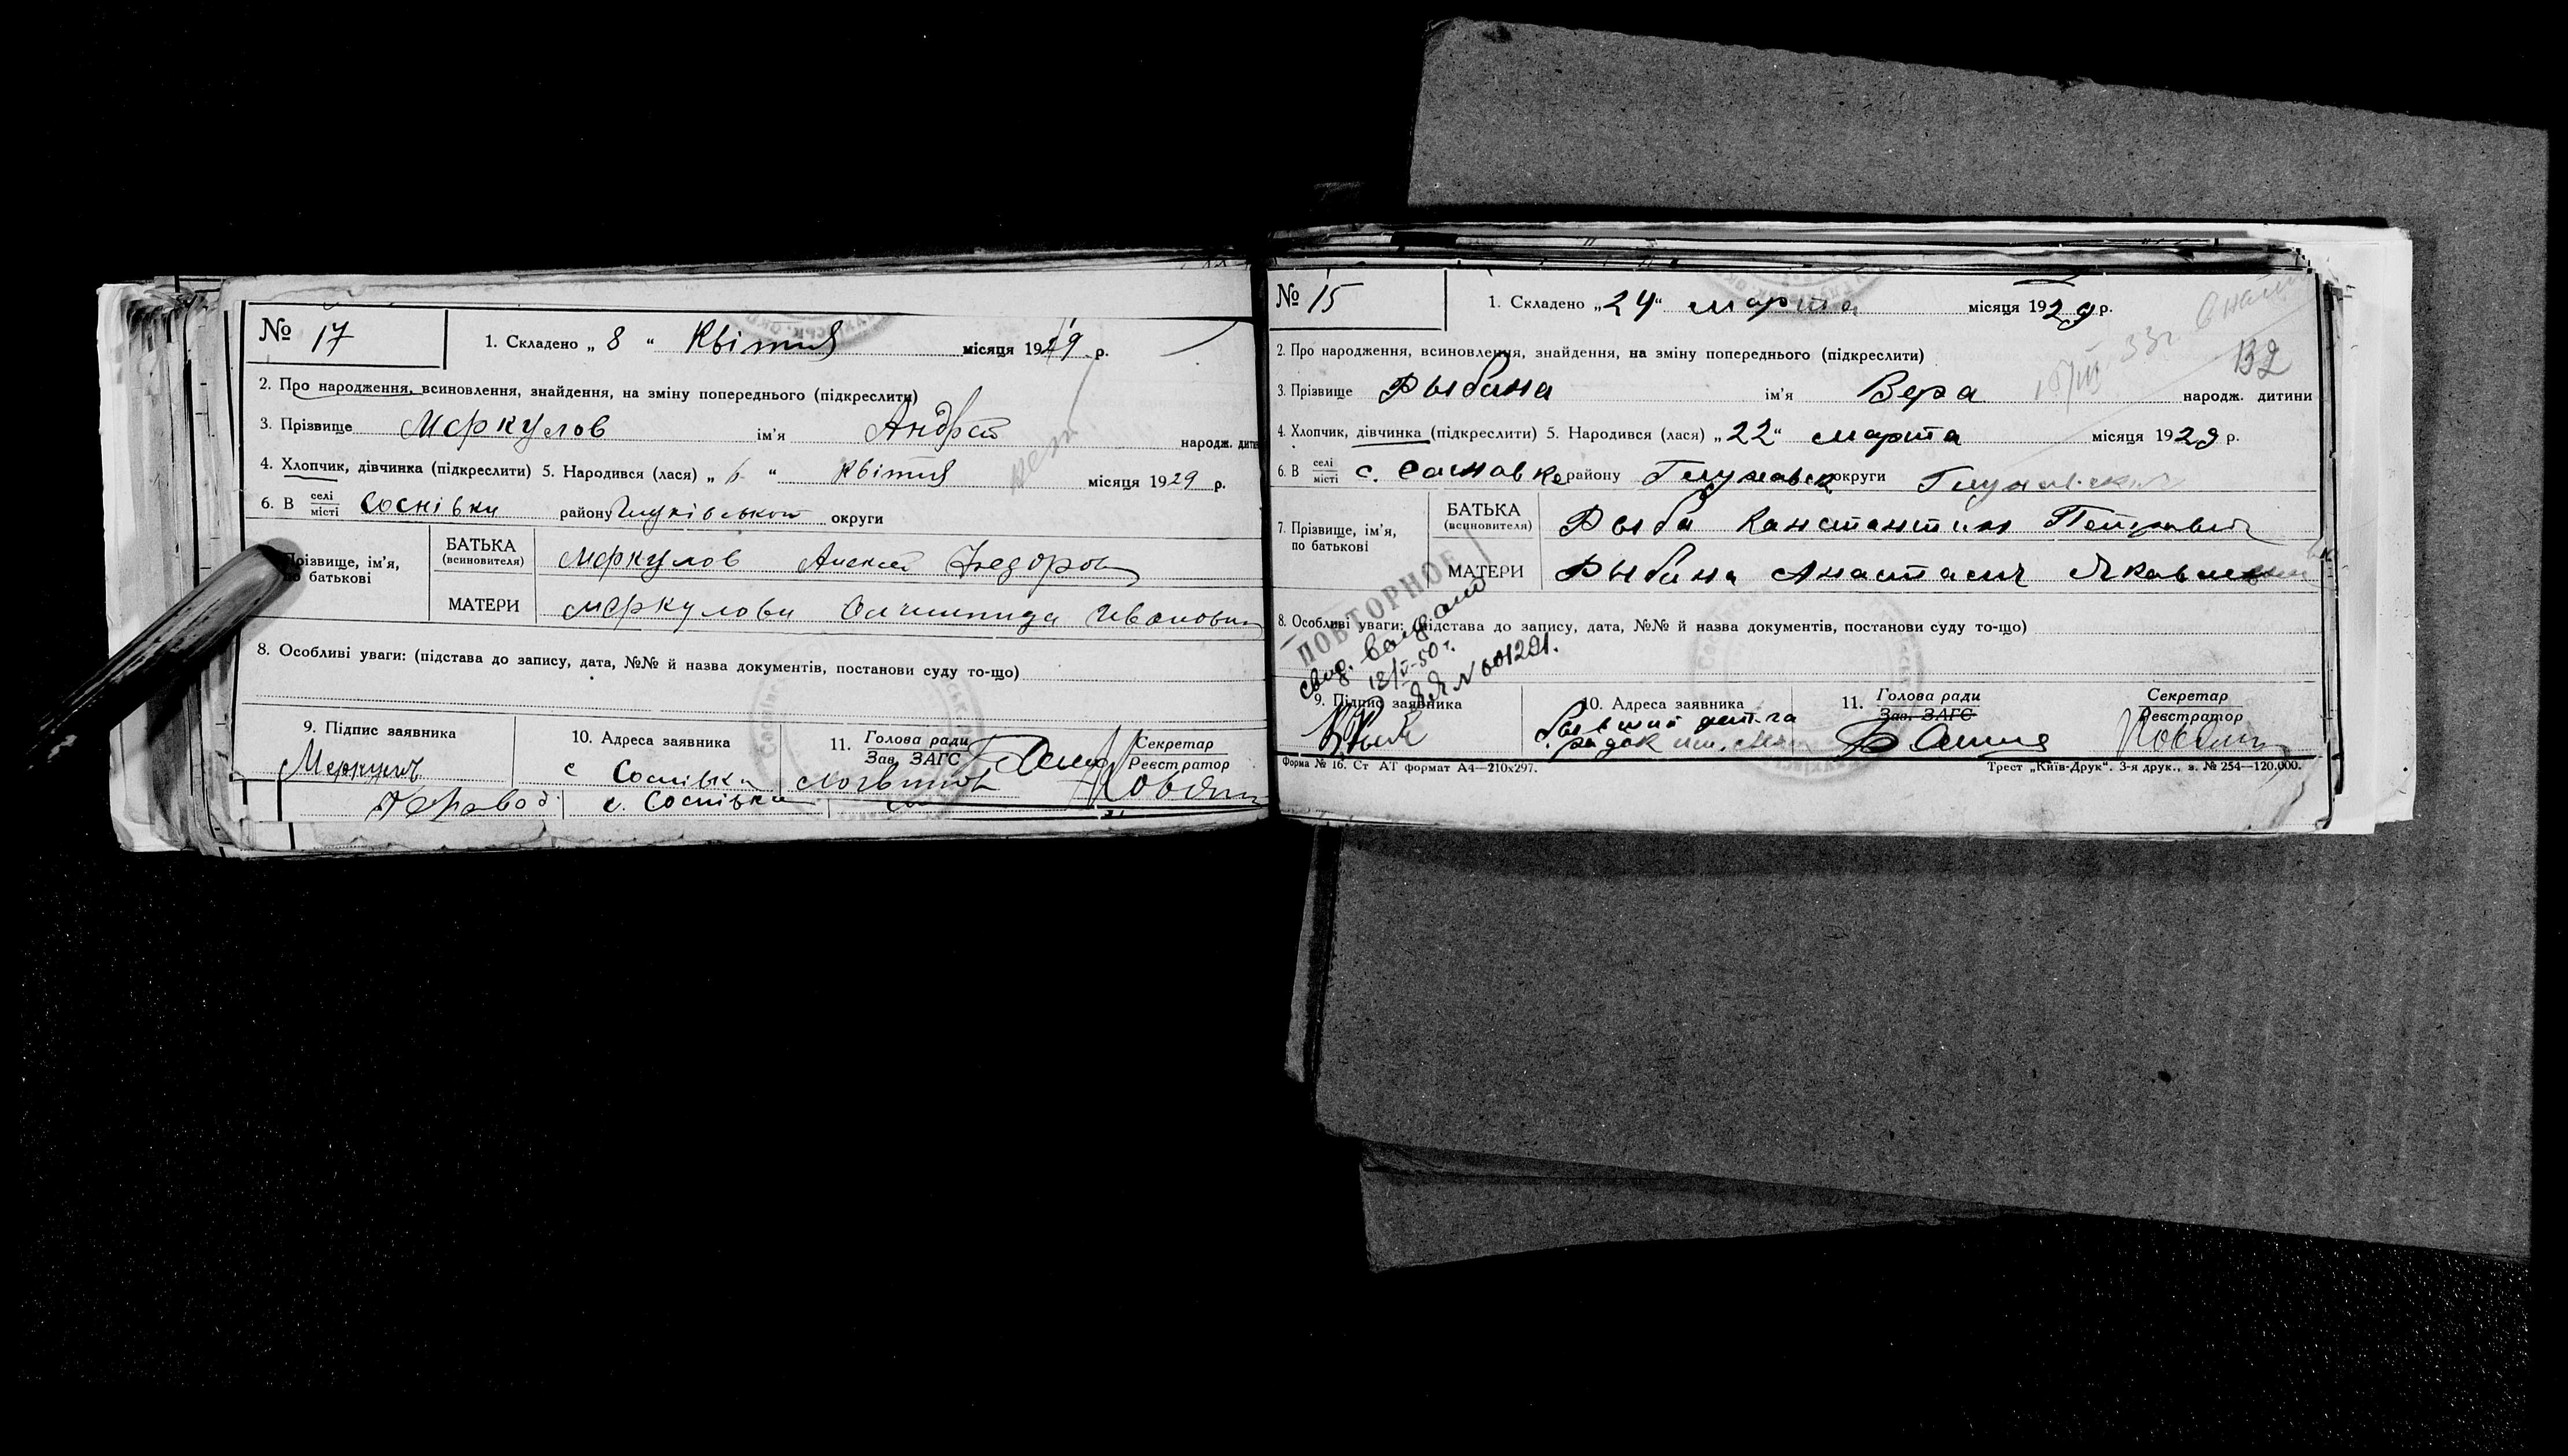 № 17
1. Складено „ 8 “ Квітня місяця 1929 р.
2. Про народження, всиновлення, знайдення, на зміну попереднього (підкреслити)
3. Прізвище Меркулов ім'я Андрей народж. дити
4. Хлопчик, дівчинка (підкреслити) 5. Народився (лася) „ 6 “ квітня місяця 1929 р.
6. В селі місті Соснівки району Глухівської округи
Прізвище, ім'я, по батькові
БАТЬКА (всиновителя) Меркулов Алексей Федоров
МАТЕРИ Меркулови Олимпида Ивановни
8. Особливі уваги: (підстава до запису, дата, №№ й назва документів, постанови суду то-що)
9. Підпис заявника
10. Адреса заявника
11. Голова ради
Зав. ЗАГС
Секретар
Реєстратор
Меркулов
с Соснівка
с. Соснівка
№ 15
1. Складено „24“ марта місяця 1929 р.
2. Про народження, всиновлення, знайдення, на зміну попереднього (підкреслити)
132
3. Прізвище Рыбина ім'я Вера народж. дитини
4. Хлопчик, дівчинка (підкреслити) 5. Народився (лася) „22“ марта місяця 1929 р.
6. В селі місті с. Сосновке району Глуховск округи Глуховской
7. Прізвище, ім'я, по батькові
БАТЬКА (всиновителя) Рыба Канстантин Петрович
МАТЕРИ Рыбина Анастасия Яковлевна
ПОВТОРНОЕ
8. Особливі уваги: (підстава до запису, дата, №№ й назва документів, постанови суду то-що)
свид. выдано
18/IV-50 г.
№ 601291.
9. Підпис заявника
10. Адреса заявника
11. Голова ради
Зав. ЗАГС
Секретар
Реєстратор
Форма № 16. Ст АТ формат А4—210х297.
Трест „Київ-Друк“. 3-я друк., з. № 254—120.000.